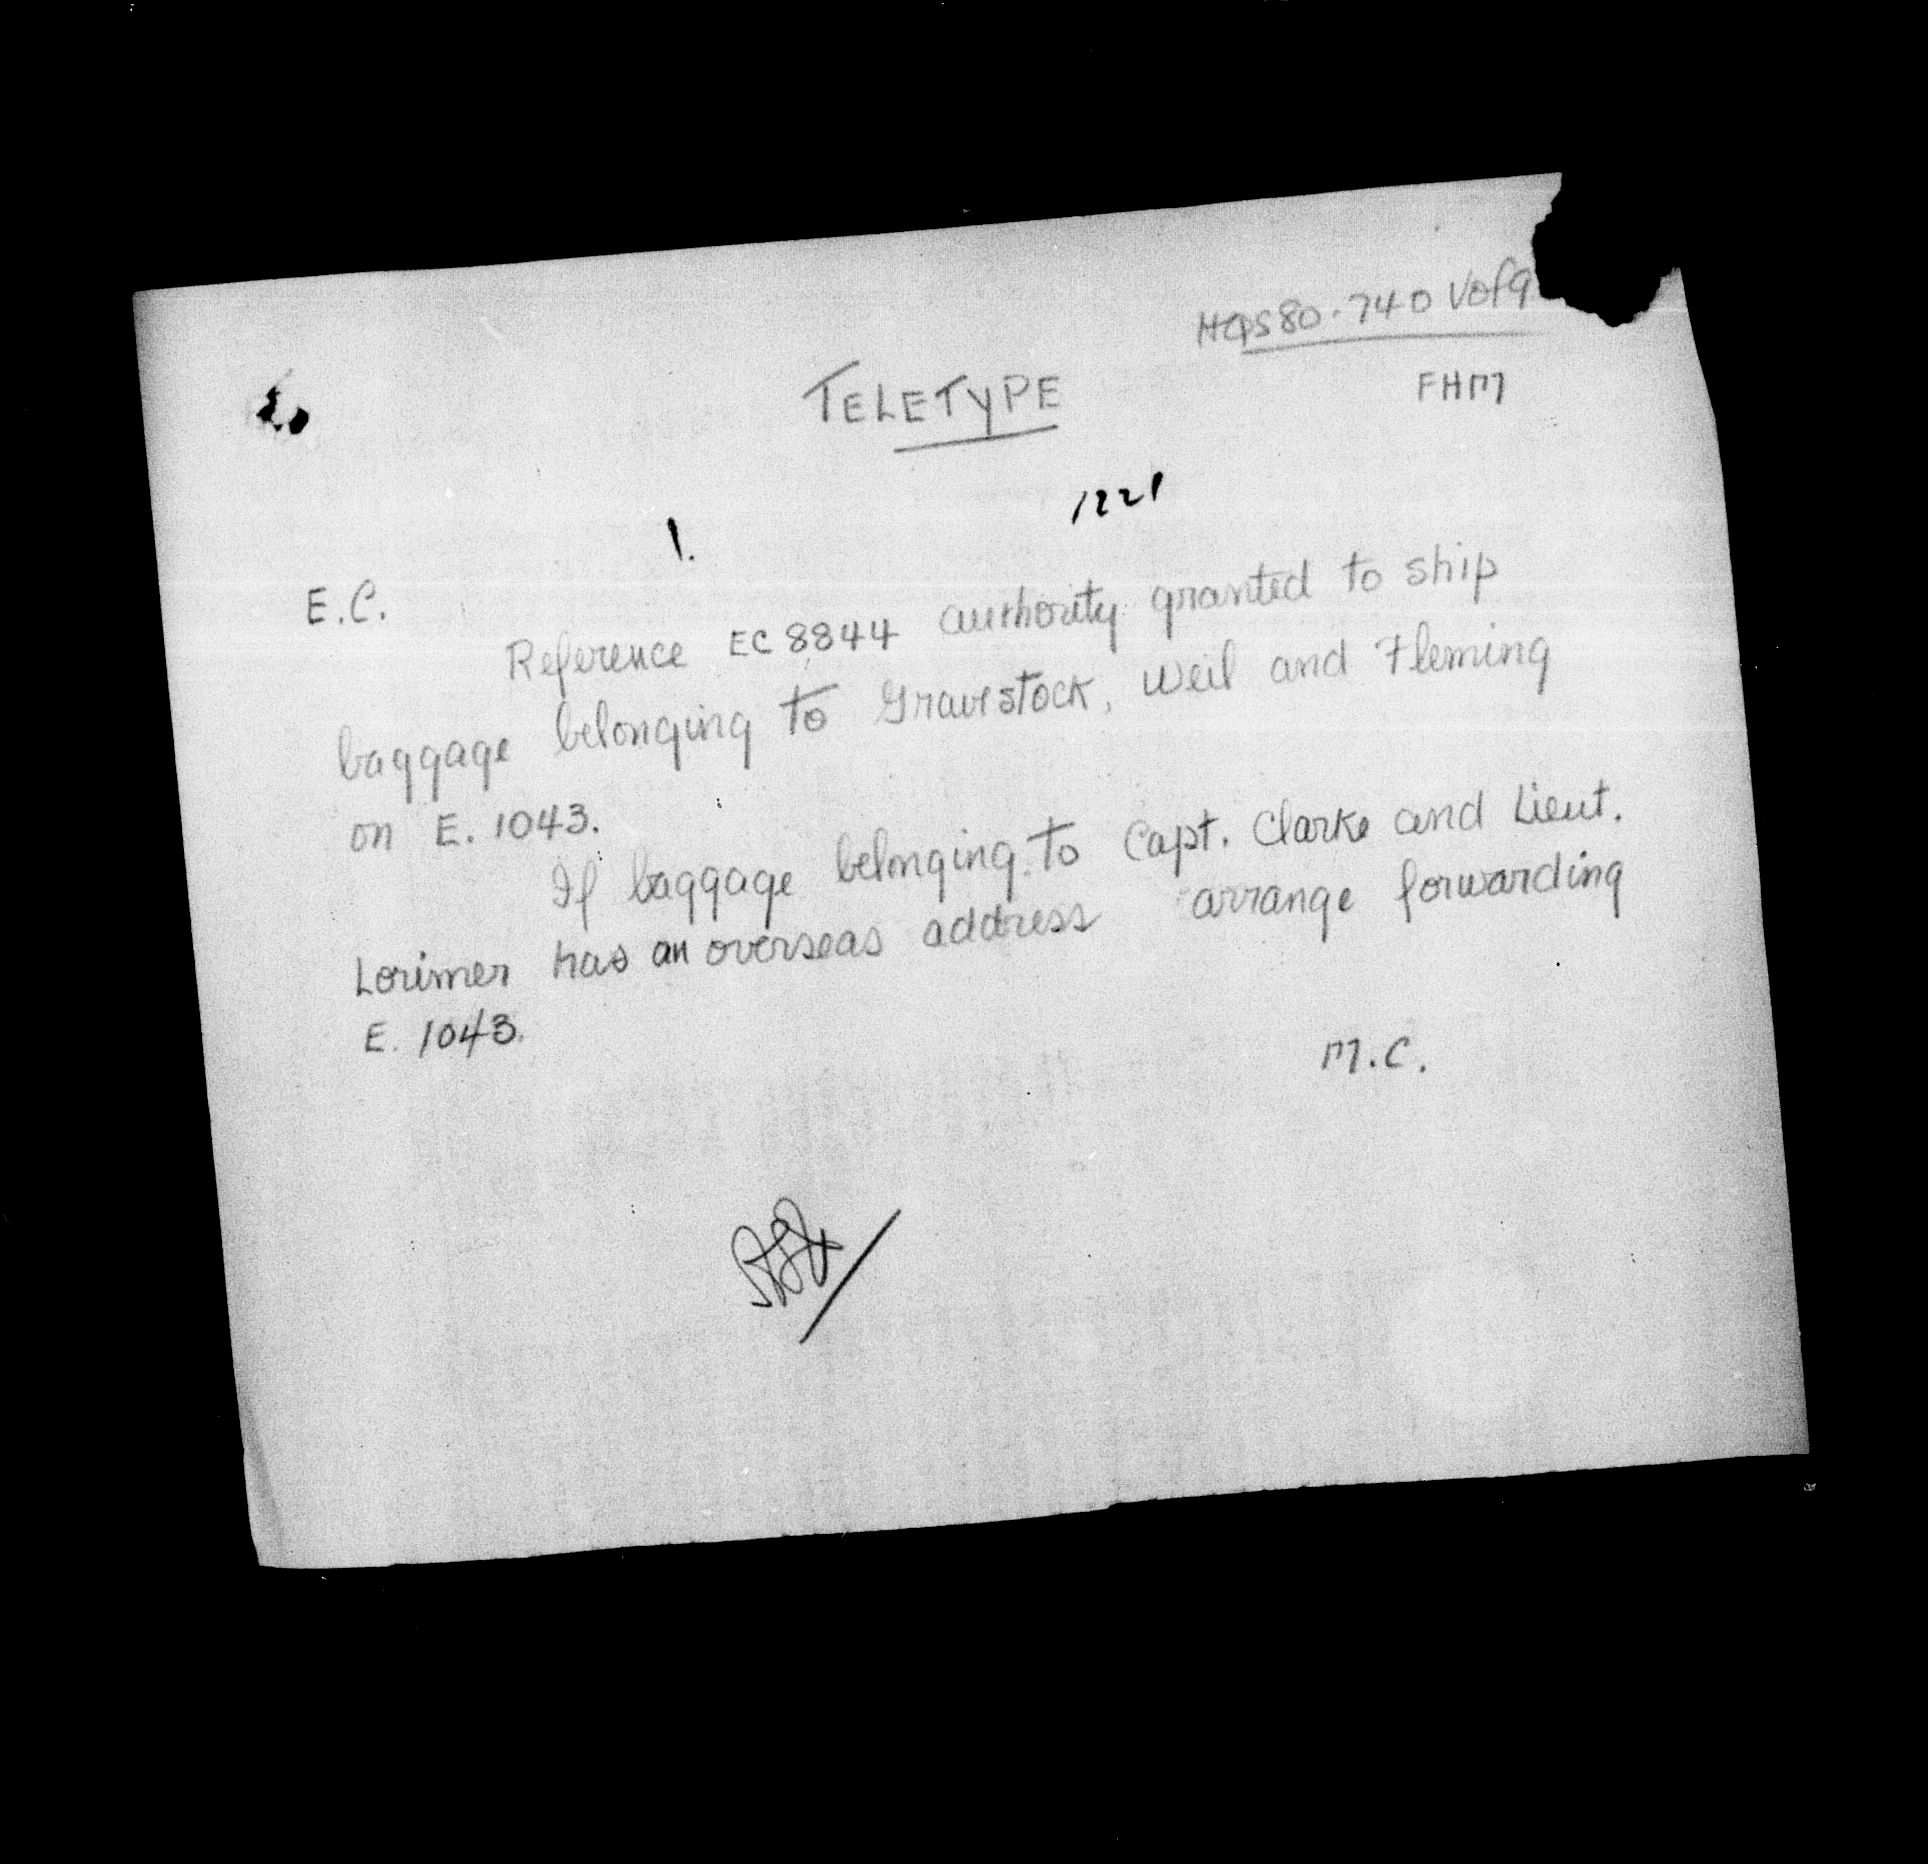 HQS80-740 Vof9
TELETYPE
FHM
1221
1.
E.C.
Reference EC 8844 authority granted to ship
baggage belonging to Gravestock, Weil and Fleming
on E. 1043.
If baggage belonging to Capt. Clarke and Lieut.
Lorimer has an overseas address arrange forwarding
E. 1043.
M.C.